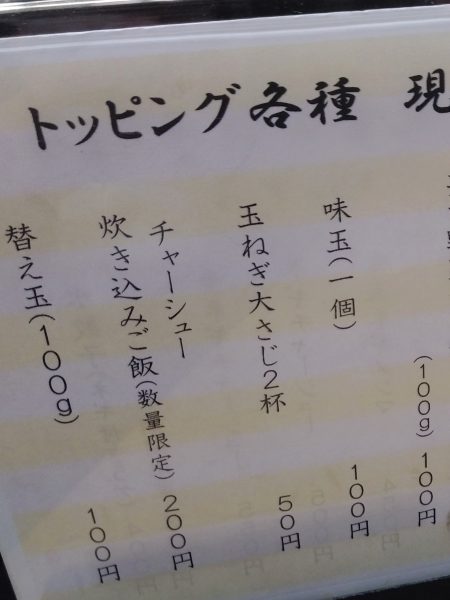 トッピング各種 現
(100g) 100円
味玉(一個) 100円
玉ねぎ大さじ2杯 50円
チャーシュー
炊き込みご飯(数量限定) 200円
替え玉(100g) 100円